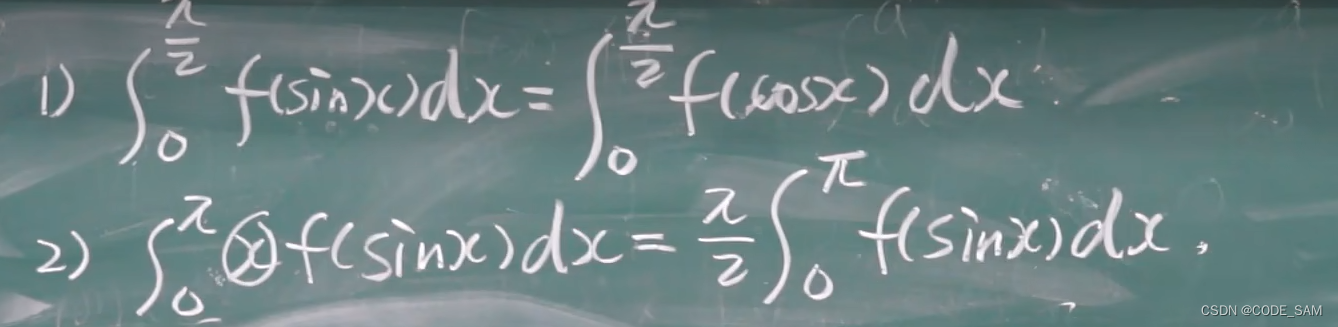 1) ∫₀^(π/2) f(sinx)dx = ∫₀^(π/2) f(cosx)dx
2) ∫₀^π ⓧ f(sinx)dx = π/2 ∫₀^π f(sinx)dx.
CSDN @CODE_SAM